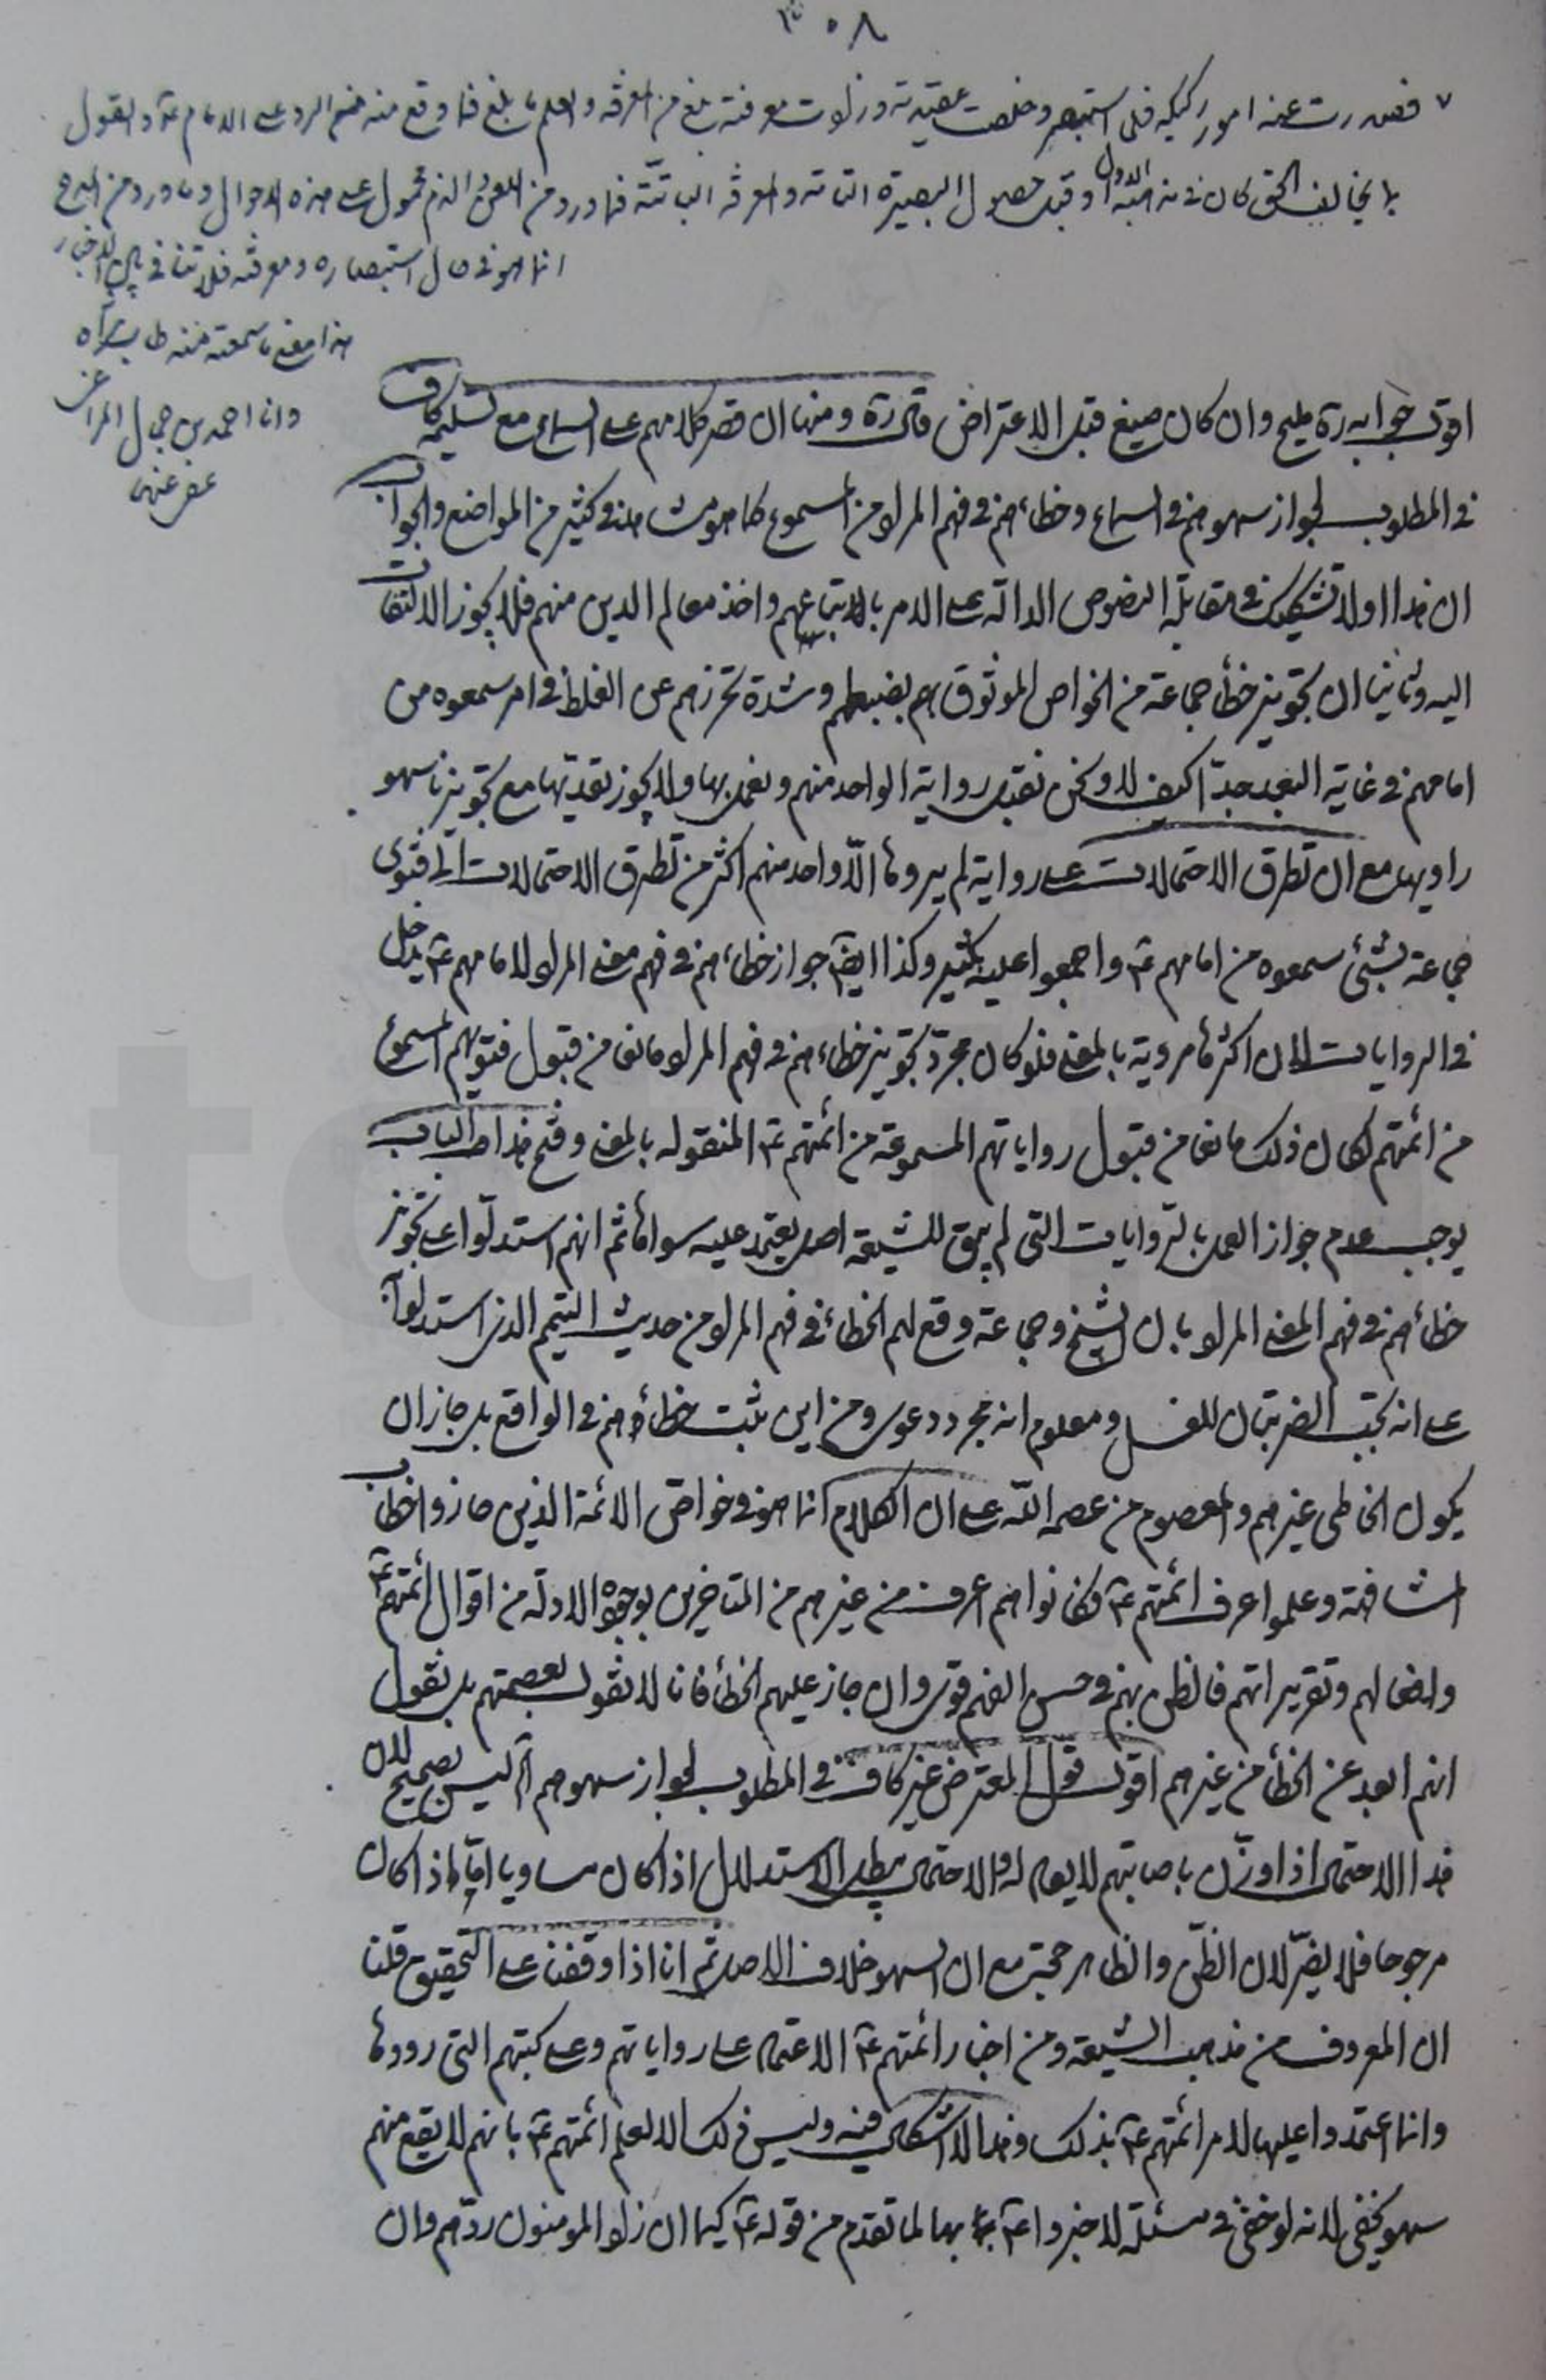 ٣٠٨
فصدرت عنه امور ركيكه فلما استبصر وخلصت عقيدته وزادت معرفته بلغ من المعرفة والعلم ما بلغ فما وقع منه من الرد على الامام ع والقول
بما يخالف الحق كان في مذهبه الاول او قبل حصول البصيرة التامه والمعرفة الثابتة فما ورد من اللعن والذم محمول على هذه الاحوال وما ورد من المدح
انما هو في حال استبصاره ومعرفته فلا تنافي بين الاخبار
هذا معنى ما سمعته منه طاب ثراه
وانا احمد بن
عفى عنهما
اقول جوابه ره مليح وان كان صيغ قبل الاعتراض قال ره ومنها ان قصر كلامهم على السماع مع تسليمه كاف
في المطلوب لجواز سهوهم في السماع وخطاءهم في فهم المراد من المسموع كما هو مشاهد في كثير من المواضع والجواب
ان هذا اولا تشكيك في مقابلة النصوص الدالة على الامر باتباعهم واخذ معالم الدين منهم فلا يجوز الالتفات
اليه وثانيا ان تجويز خطأ جماعة من الخواص الموثوق بهم بضبطهم وشدة تحرزهم عن الغلط في امر سمعوه من
امامهم في غاية البعد جدا كيف لا ونحن نقبل رواية الواحد منهم ونعمل بها ولا يجوز تعديتها مع تجويزنا سهو
راويها مع ان تطرق الاحتمالات على رواية لم يروها الّا واحد منهم اكثر من تطرق الاحتمالات الى فتوى
جماعة بشئ سمعوه من امامهم ع واجمعوا عليه بكثير وكذا ايضا جواز خطاءهم في فهم معنى المراد لامامهم ع يدخل
في الروايات لان اكثرها مروية بالمعنى فلو كان مجرد تجويز خطاءهم في فهم المراد مانعا من قبول فتويهم المسموع
من ائمتهم لكان ذلك مانعا من قبول رواياتهم المسموعة من ائمتهم ع المنقوله بالمعنى وفتح هذا الباب
يوجب عدم جواز العمل بالروايات التي لم يبق للشيعة اصل يعتمد عليه سواها ثم انهم استدلّوا على تجويز
خطأهم في فهم المعنى المراد بان الشيخ وجماعة وقع لهم الخطاء في فهم المراد من حديث التيمم الذي استدلوا به
على انه يجب الضربتان للغسل ومعلوم انه مجرد دعوى ومن اين يثبت خطأهم في الواقع بل جاز ان
يكون الخاطى غيرهم والمعصوم من عصمه اللّه على ان الكلام انما هو في خواص الائمة الذين حازوا خطاب
المشافهة وعلموا عرف ائمتهم ع فكانوا هم اعرف من غيرهم من المتاخرين بوجوه الادلة من اقوال ائمتهم ع
وافعالهم وتقريراتهم فالظن بهم في حسن الفهم قوي وان جاز عليهم الخطأ فانا لا نقول بعصمتهم بل نقول
انهم ابعد عن الخطأ من غيرهم اقول قول المعترض غير كاف في المطلوب لجواز سهوهم الخ ليس بصحيح لان
هذا الاحتمال اذا وزن باصابتهم لا يعادله والاحتمال يبطل الاستدلال اذا كان مساويا امّا اذا كان
مرجوحا فلا يضرّ لان الظنّ والظاهر حجة مع ان السهو خلاف الاصل ثم انا اذا وقفنا على التحقيق قلنا
ان المعروف من مذهب الشيعة ومن اخبار ائمتهم ع الاعتماد على رواياتهم وعلى كتبهم التي رووها
وانما اعتمدوا عليها لامر ائمتهم ع بذلك وهذا لا اشكال فيه وليس ذلك الا لعلم ائمتهم ع بانهم لا يقع منهم
سهو يخفى لانه لو خفى في مسئلة لاخبروا ع بها لما تقدم من قوله ع كيما ان زاد المومنون ردّهم وان